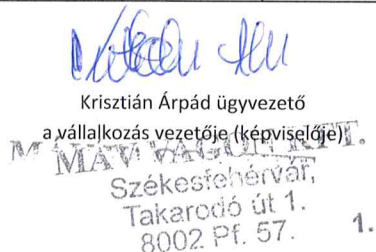 Krisztián Árpád ügyvezető
a vállalkozás vezetője (képviselője)
MÁV VAGON KFT.
Székesfehérvár,
Takarodó út 1.
8002 Pf. 57.
1.